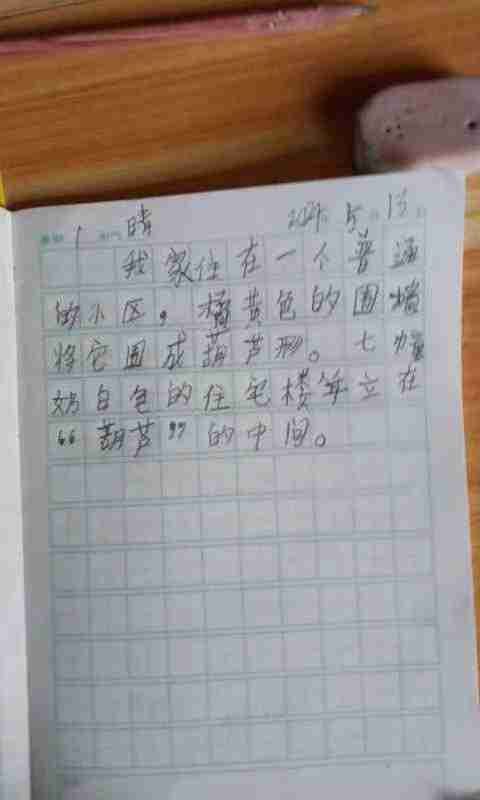 晴 5 13
我家住在一个普通
的小区。橘黄色的围墙
将它围成葫芦形。七幢
奶白色的住宅楼耸立在
“葫芦”的中间。